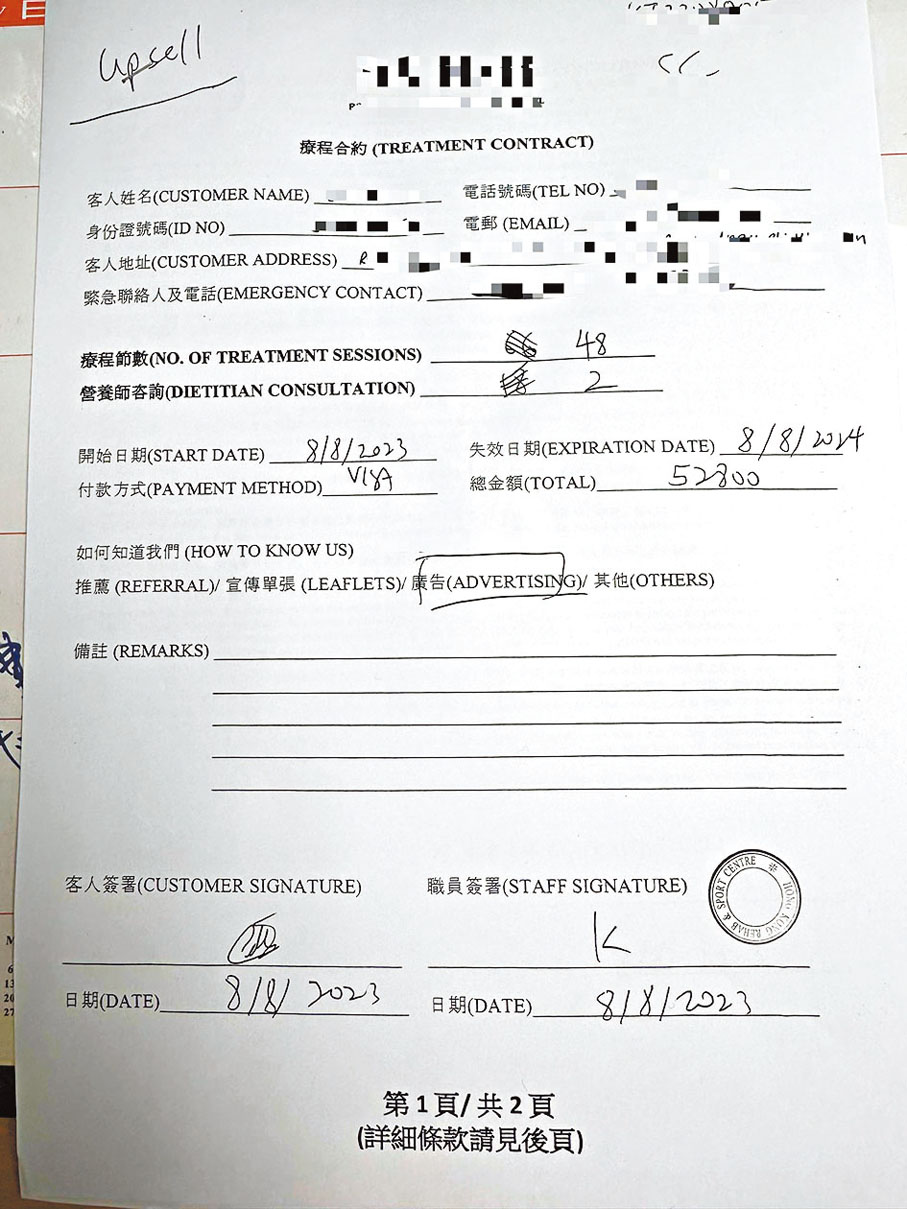 upsell
療程合約 (TREATMENT CONTRACT)
客人姓名(CUSTOMER NAME) 電話號碼(TEL NO)
身份證號碼(ID NO) 電郵 (EMAIL)
客人地址(CUSTOMER ADDRESS) R
緊急聯絡人及電話(EMERGENCY CONTACT)
療程節數(NO. OF TREATMENT SESSIONS) 48
營養師咨詢(DIETITIAN CONSULTATION) 2
開始日期(START DATE) 8/8/2023 失效日期(EXPIRATION DATE) 8/8/2024
付款方式(PAYMENT METHOD) VISA 總金額(TOTAL) 52800
如何知道我們 (HOW TO KNOW US)
推薦 (REFERRAL)/ 宣傳單張 (LEAFLETS)/ 廣告(ADVERTISING)/ 其他(OTHERS)
備註 (REMARKS)
客人簽署(CUSTOMER SIGNATURE) 職員簽署(STAFF SIGNATURE)
HONG KONG REHAB & SPORT CENTRE
K
日期(DATE) 8/8/2023 日期(DATE) 8/8/2023
第 1 頁/ 共 2 頁
(詳細條款請見後頁)